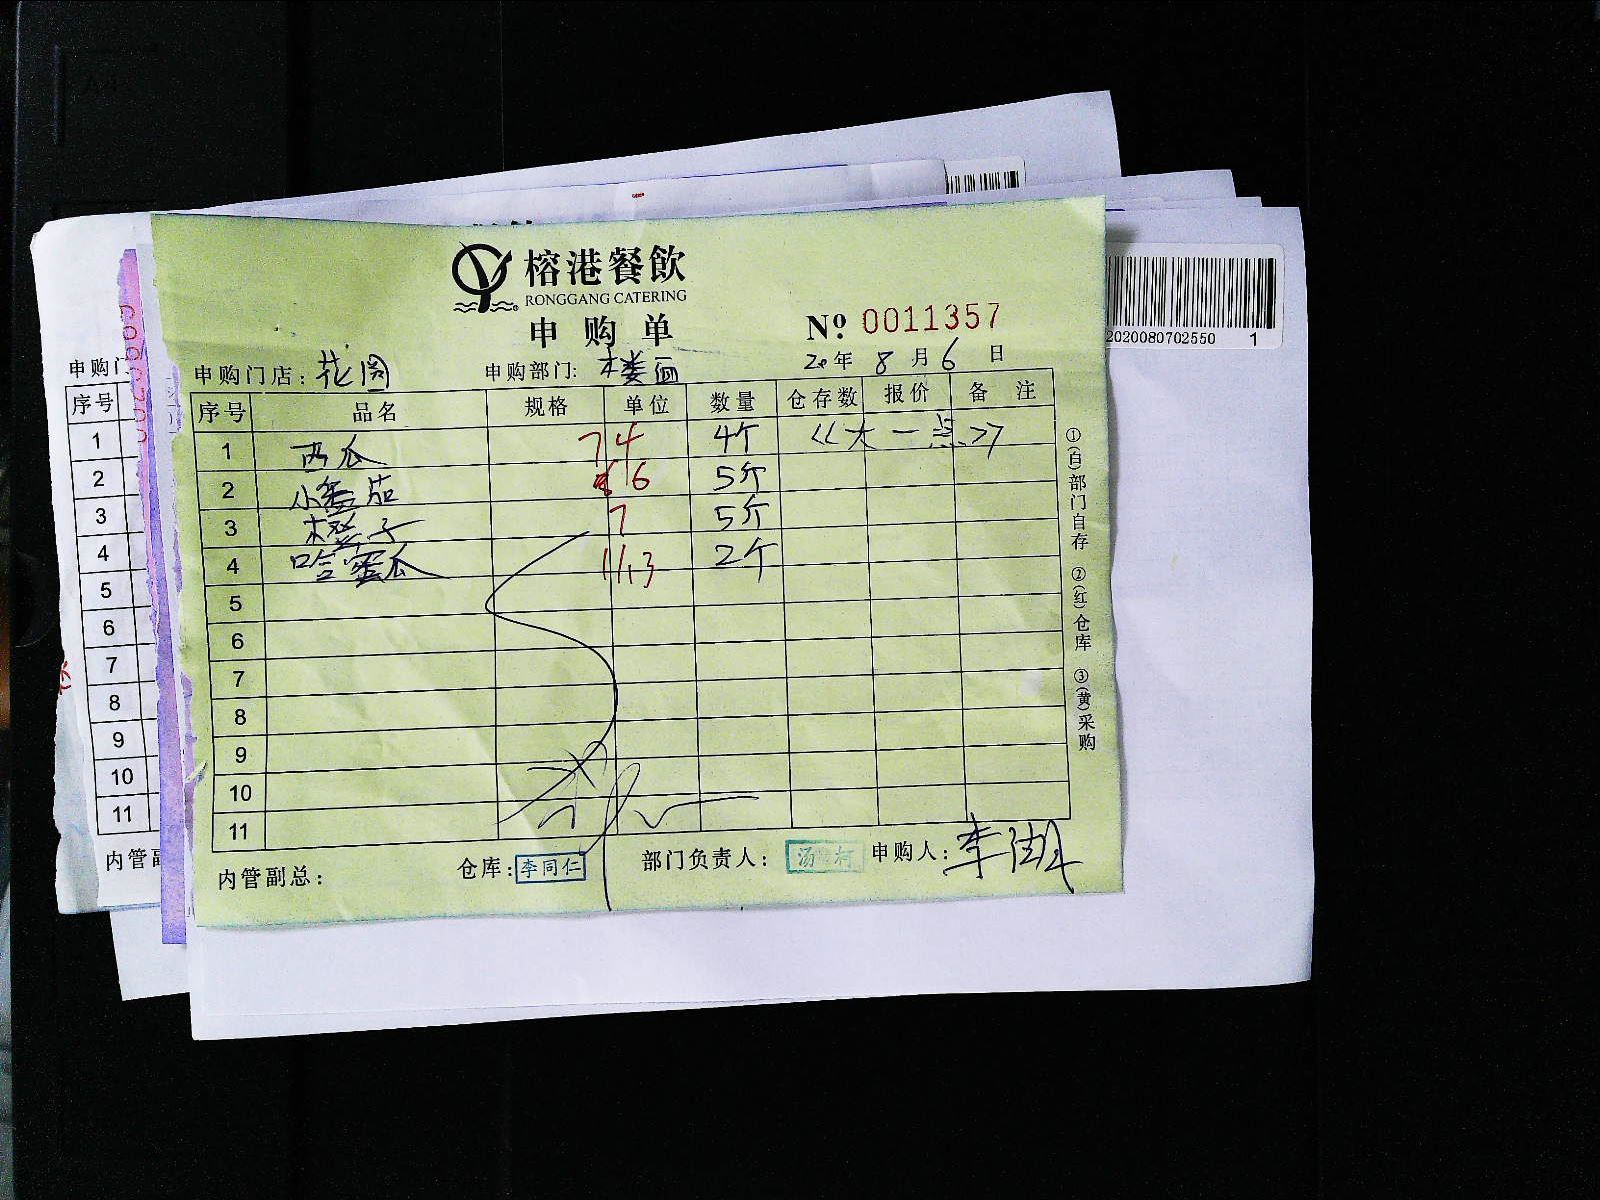 榕港餐飲
RONGGANG CATERING
申购单
№ 0011357
2020080702550 1
申购门店: 花园 申购部门: 楼面 20年 8月 6日
序号 品名 规格 单位 数量 仓存数 报价 备注
1 西瓜 74 4个 《大一点》
2 小番茄 6 5斤
3 橙子 7 5斤
4 哈蜜瓜 11.13 2个
5
6
7
8
9
10
11
内管副总: 仓库: 李同仁 部门负责人: 申购人: 李
①(白)部门自存 ②(红)仓库 ③(黄)采购
申购门
序号
1
2
3
4
5
6
7
8
9
10
11
内管副